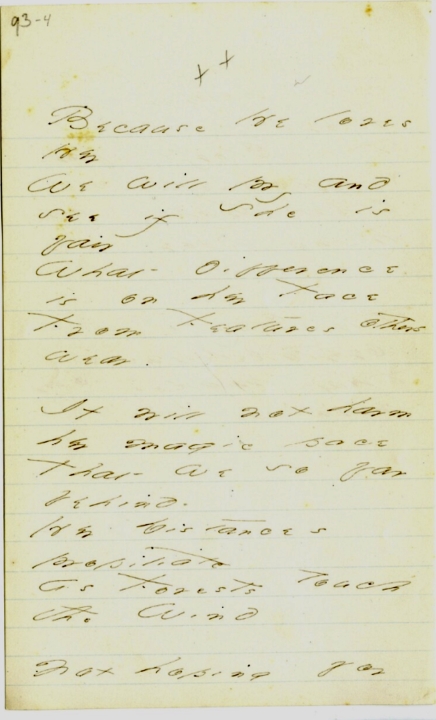 93-4
x x
Because he loves
Her
We will pry and
see if she is
fair
What difference
is on her Face
From Features others
wear.
It will not harm
her magic pace
That we so far
behind.
Her Distances
propitiate
As Forests touch
the Wind
Not hoping for